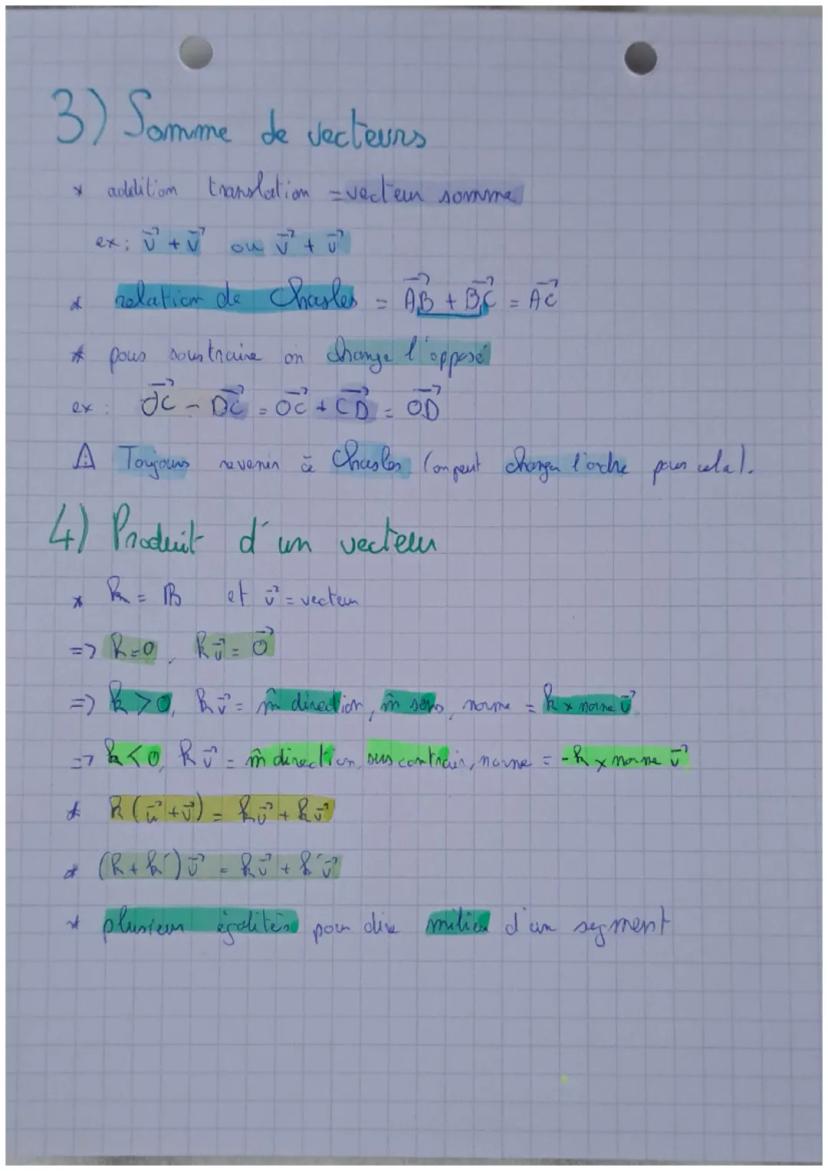 3) Somme de vecteurs
* addition translation = vecteur somme
ex: u⃗ + v⃗ ou v⃗ + u⃗
* relation de Chasles = AB⃗ + BC⃗ = AC⃗
* pour soustraire on change l'opposé
ex: OC⃗ - DC⃗ = OC⃗ + CD⃗ = OD⃗
⚠ Toujours revenir à Chasles (on peut changer l'ordre pour cela).
4) Produit d'un vecteur
* k = ℝ et u⃗ = vecteur
=> k=0, k u⃗ = 0⃗
=> k > 0, k u⃗ = m̂ direction, m̂ sens, norme = k x norme u⃗
=> k < 0, k u⃗ = m̂ direction, sens contrair, norme = -k x norme u⃗
* k (u⃗ + v⃗) = k u⃗ + k v⃗
* (k + k') u⃗ = k u⃗ + k' u⃗
* plusieurs égalités pour dire milieu d'un segment